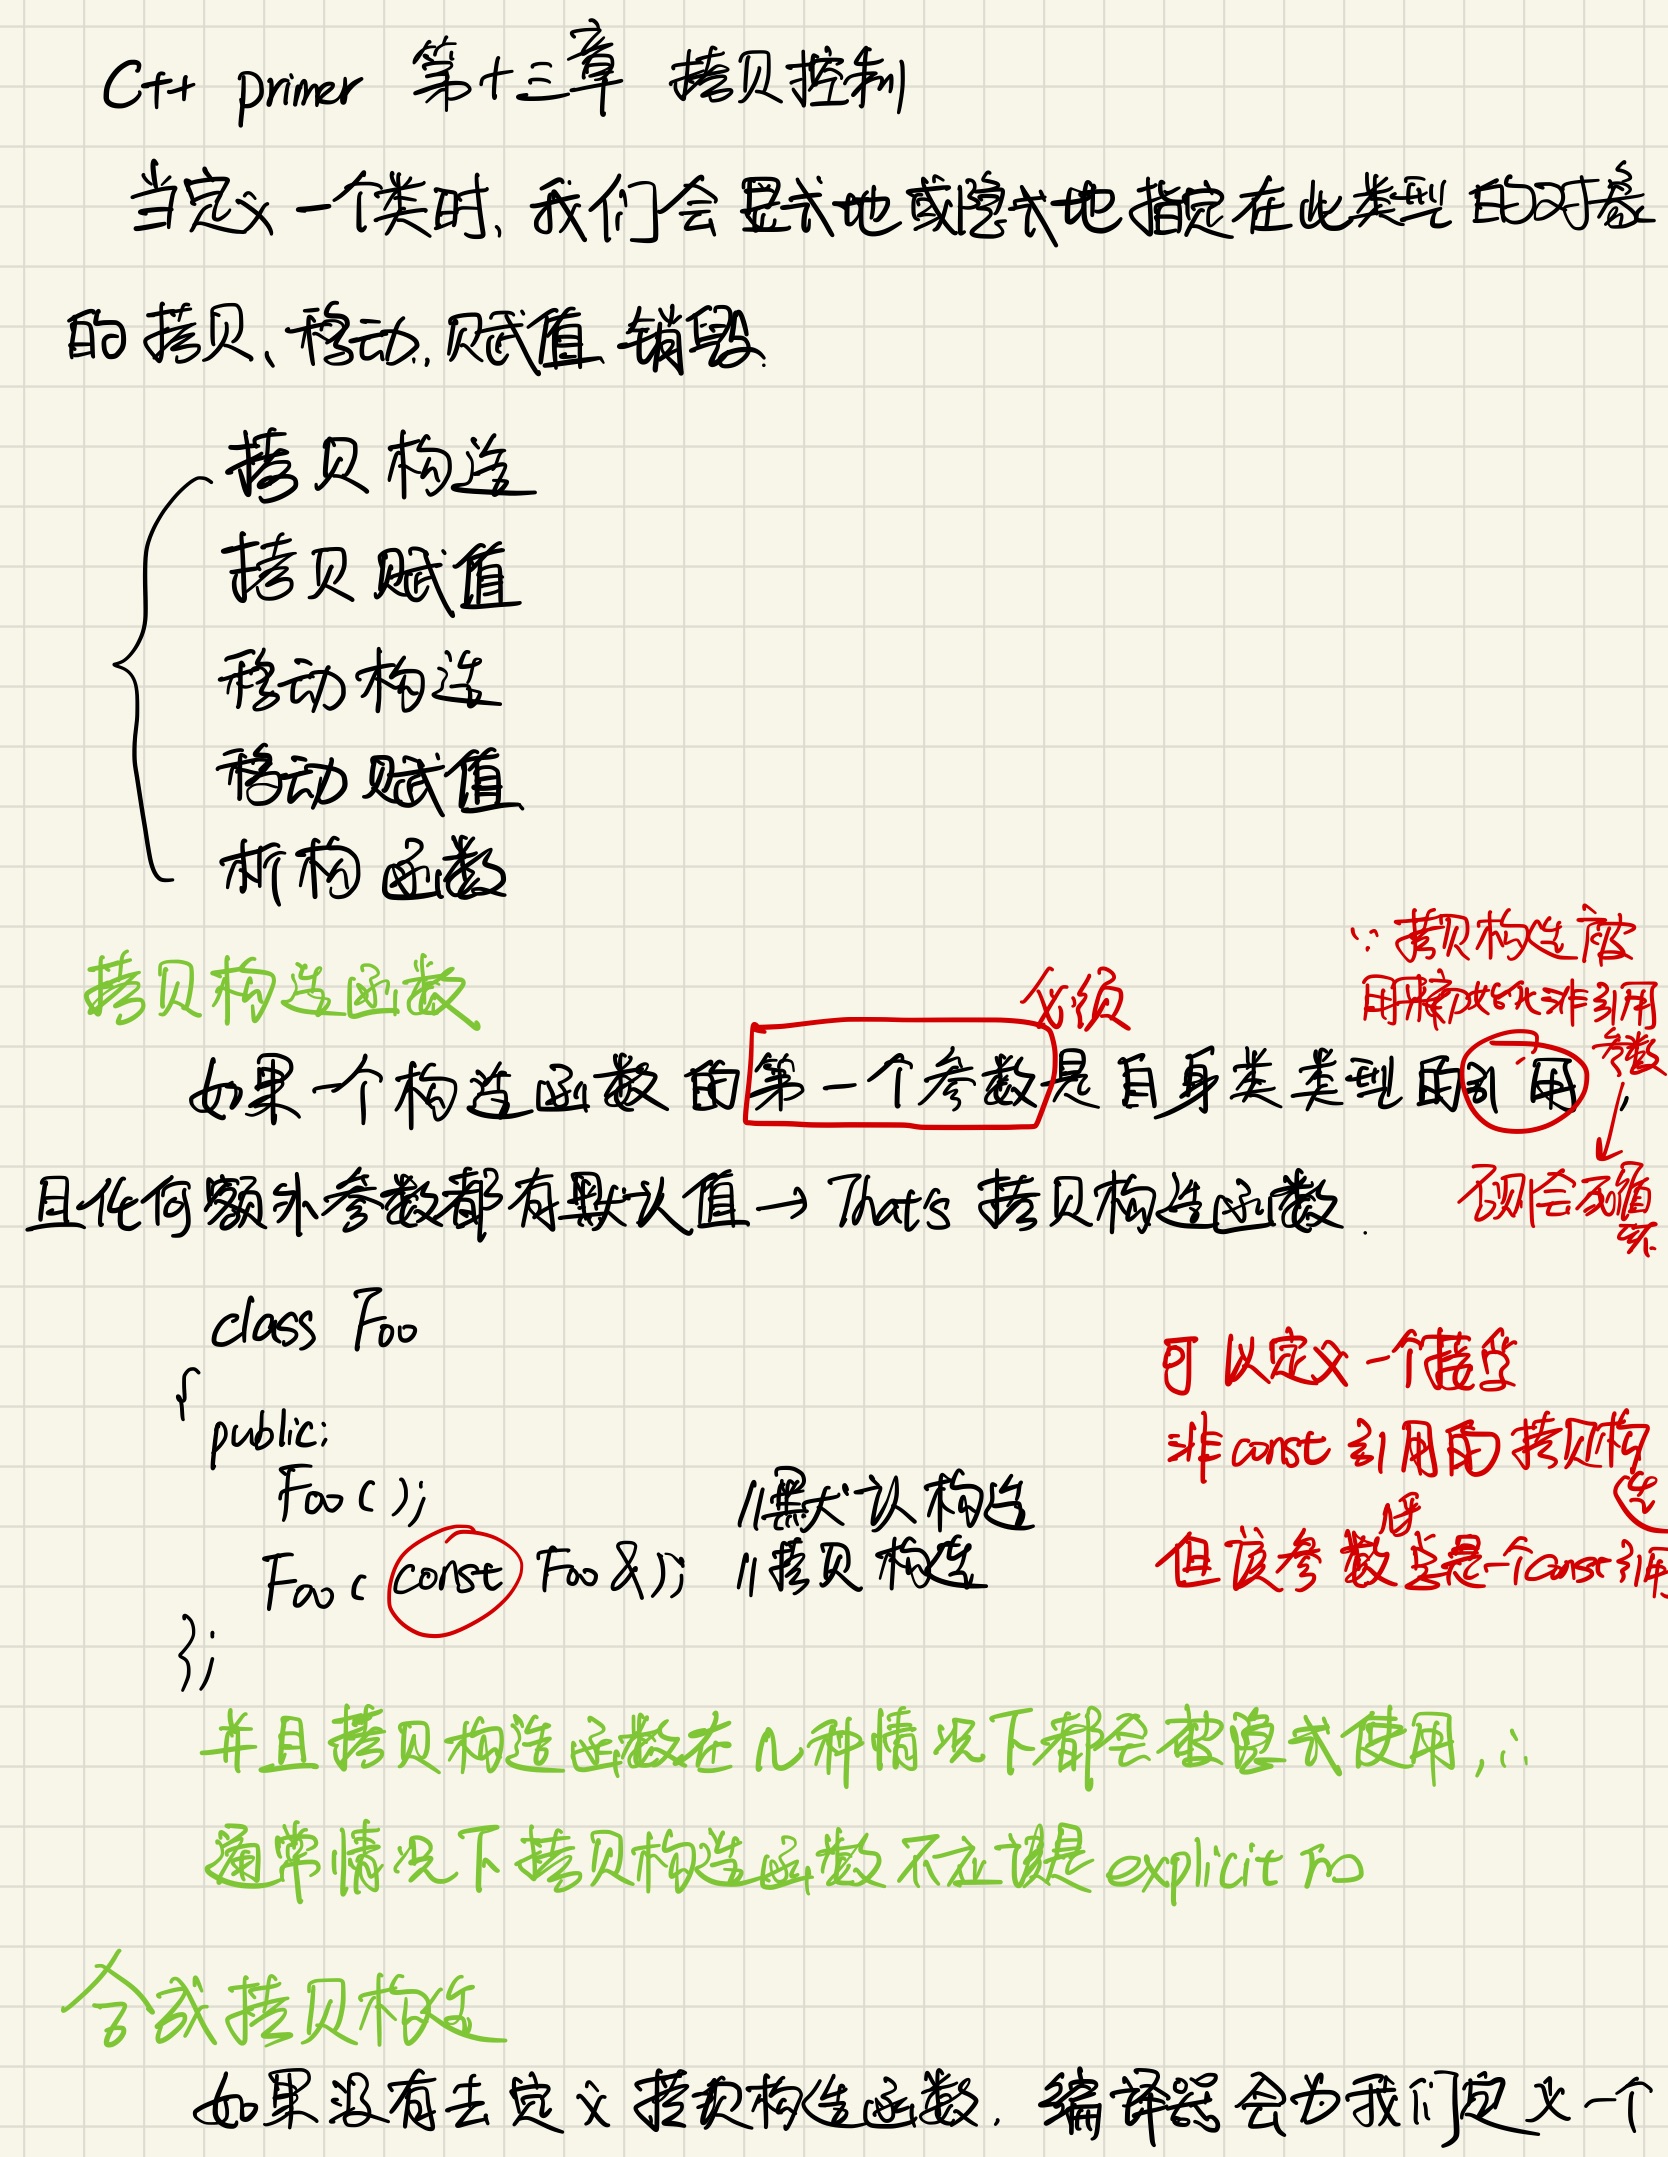 C++ primer 第十三章 拷贝控制
当定义一个类时、我们会显式地或隐式地指定在此类型的对象
的拷贝、移动、赋值、销毁.
拷贝构造
拷贝赋值
移动构造
移动赋值
析构函数
∵拷贝构造被
用来初始化非引用
参数
↓
否则会死循
环
拷贝构造函数
必须
如果一个构造函数的第一个参数是自身类类型的引用,
且任何额外参数都有默认值→That's 拷贝构造函数.
class Foo
{
public:
Foo();　//默认构造
Foo(const Foo&);　//拷贝构造
};
可以定义一个接受
非const引用的拷贝构
造
但该参数几乎总是一个const引用
并且拷贝构造函数在几种情况下都会被隐式使用,∴
通常情况下拷贝构造函数不应该是explicit的
合成拷贝构造
如果没有去定义拷贝构造函数、编译器会为我们定义一个